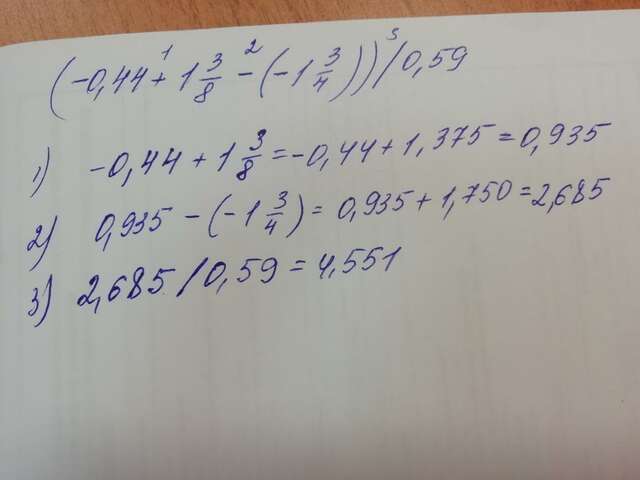 (-0,44 + 1 3/8 - (-1 3/4)) / 0,59
1 2 3
1) -0,44 + 1 3/8 = -0,44 + 1,375 = 0,935
2) 0,935 - (-1 3/4) = 0,935 + 1,750 = 2,685
3) 2,685 / 0,59 = 4,551